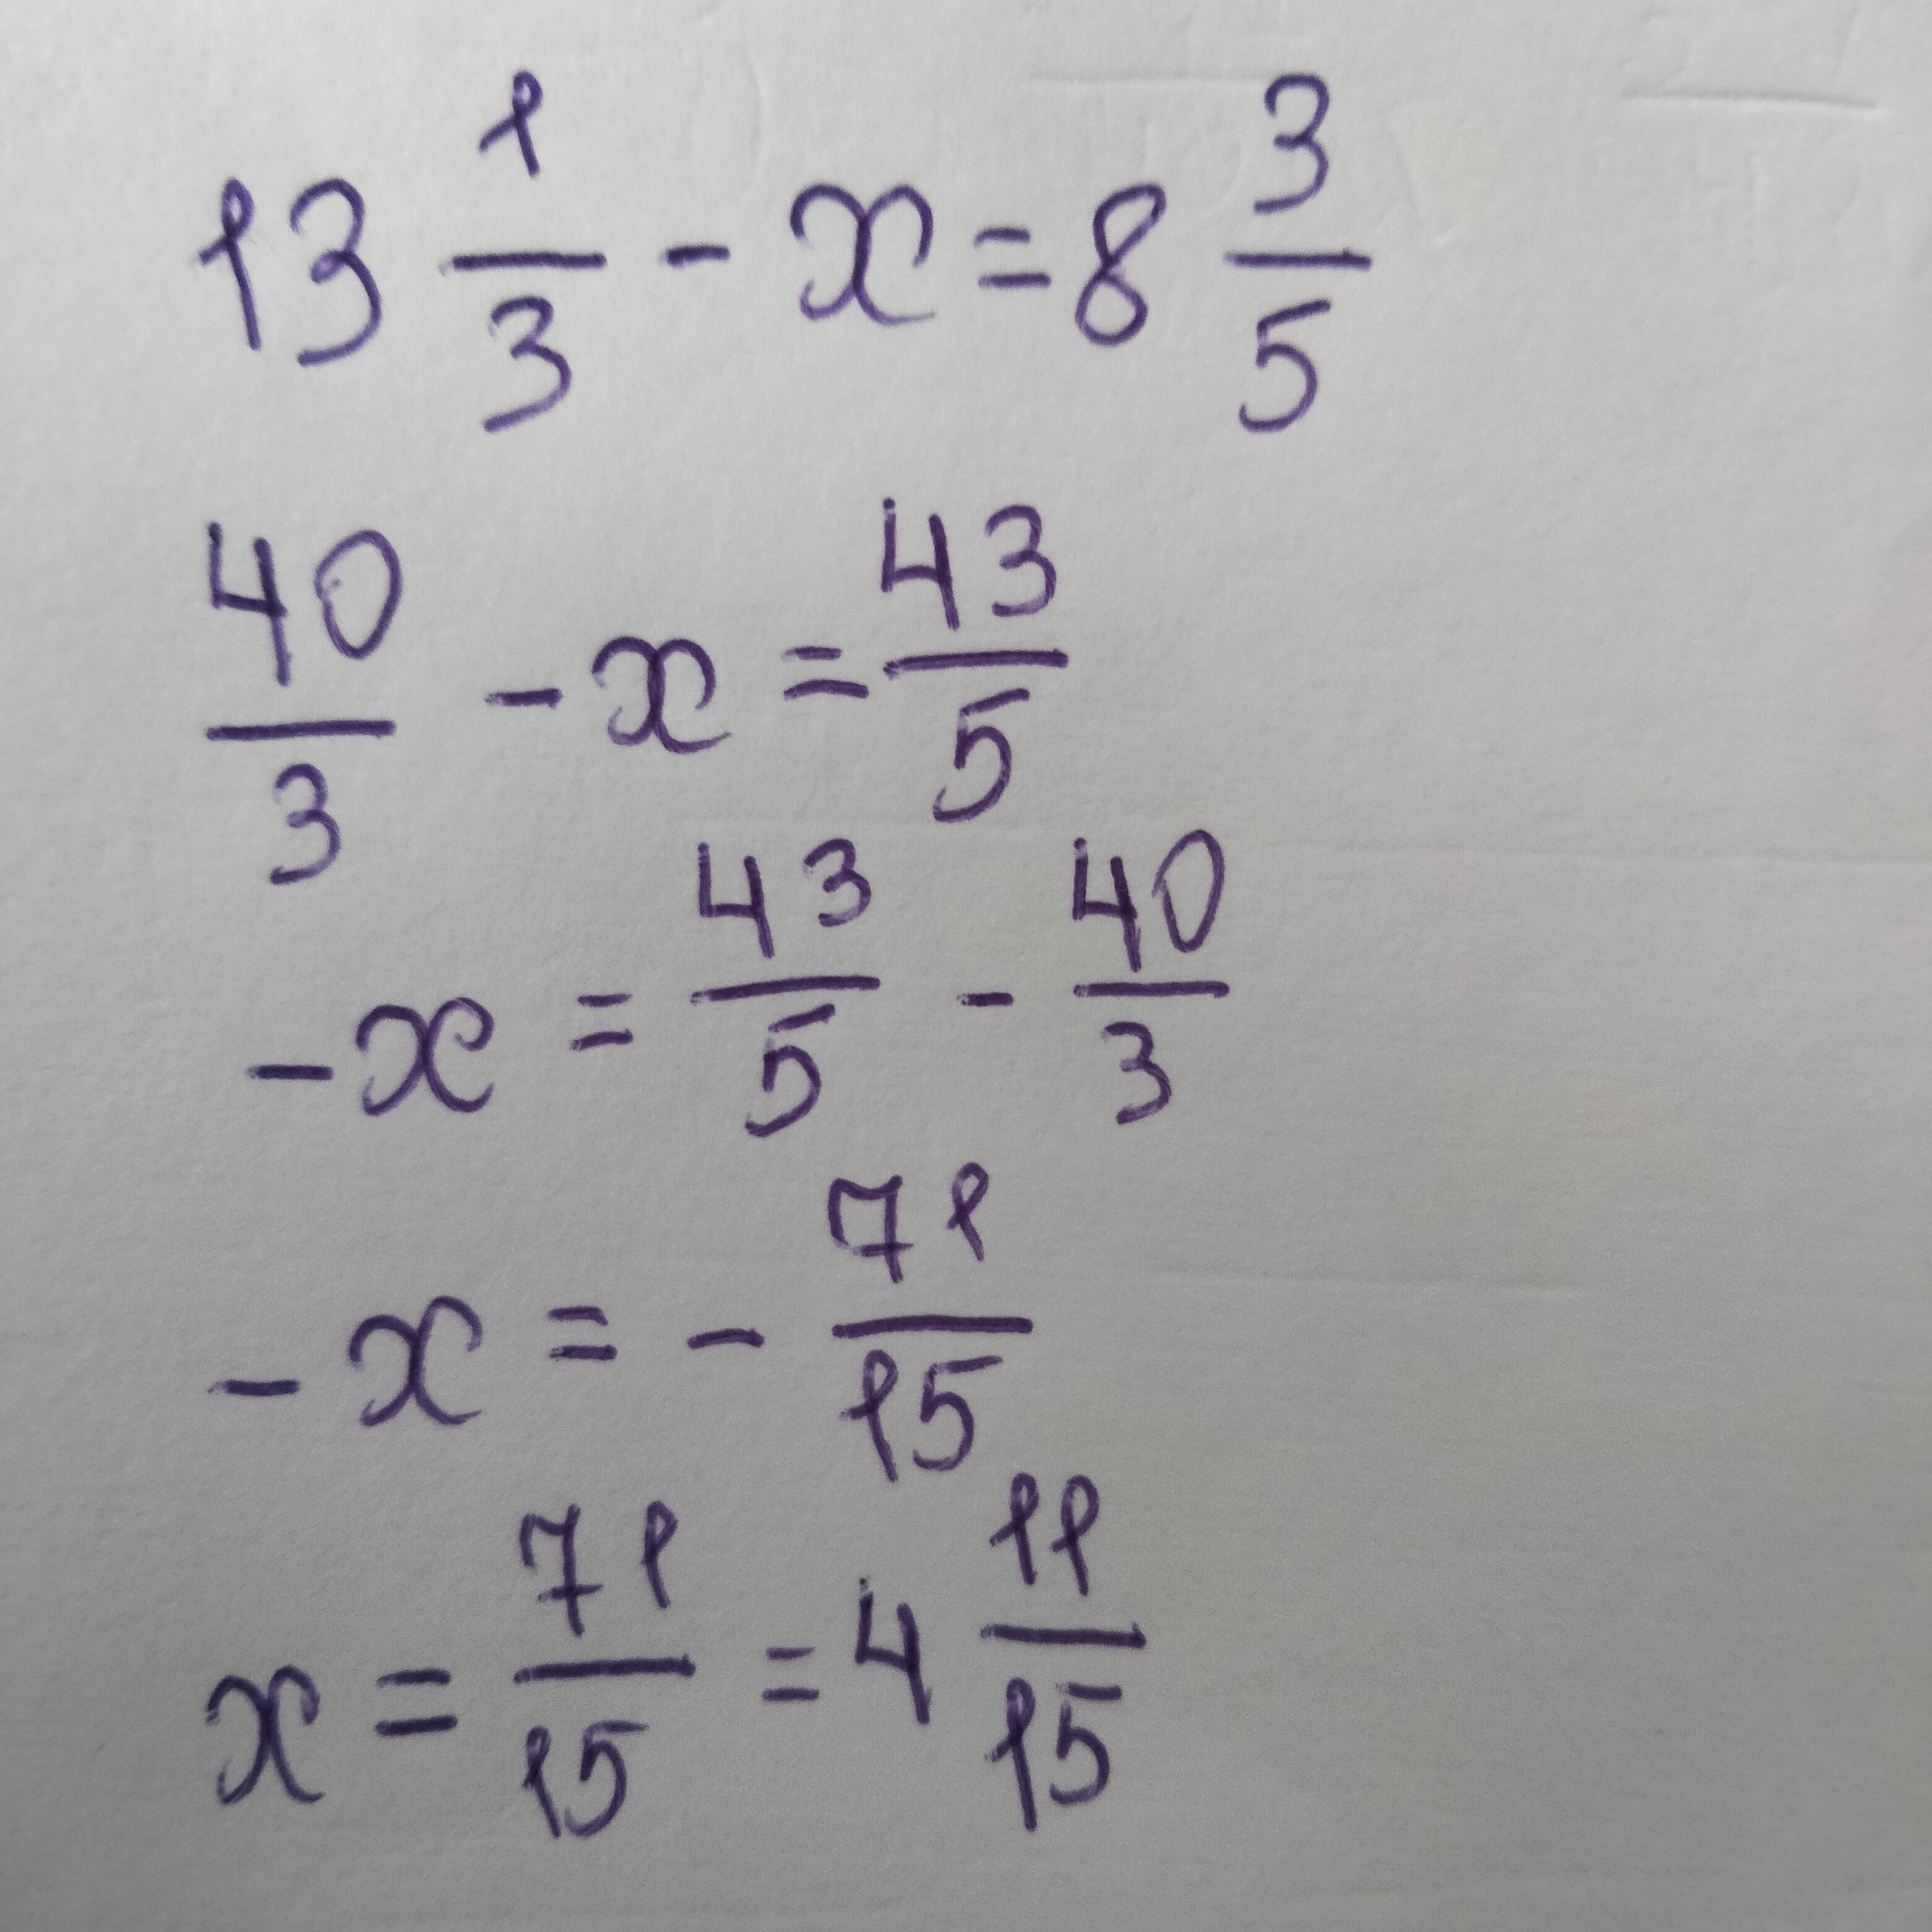 13 1/3 - x = 8 3/5
40/3 - x = 43/5
-x = 43/5 - 40/3
-x = - 71/15
x = 71/15 = 4 11/15